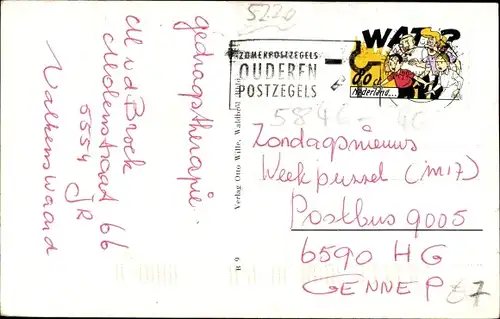 5220
ZOMERPOSTZEGELS
OUDEREN
POSTZEGELS
WAT?
80c
Nederland...
5846 - 46
gedragstherapie.
M vd Brock
Molenstraat 66
5554 JR
Valkenswaard
Verlag Otto Wille, Waldbröl
B 9
Zondagsnieuws
Weekpuzzel (m17)
Postbus 9005
6590 HG
GENNEP
67